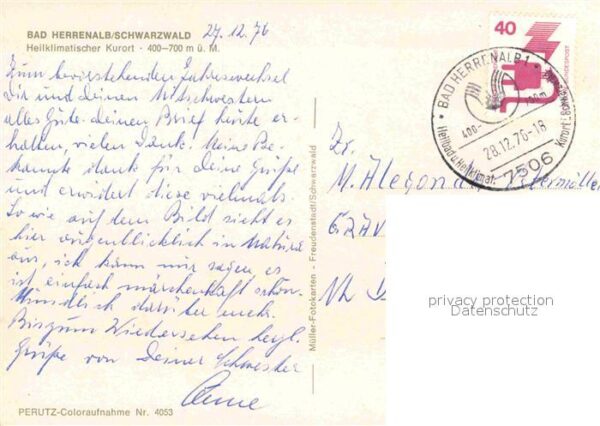 BAD HERRENALB/SCHWARZWALD 27.12.76
Heilklimatischer Kurort · 400–700 m ü. M.
Zum bevorstehenden Jahreswechsel
Dir und Deinen Mitschwestern
alles Gute. Deinen Brief heute er-
halten, vielen Dank! Meine Be-
kannte dankt für Deine Grüße
und erwidert diese vielmals.
So wie auf dem Bild sieht es
hier augenblicklich in Natura
aus, ich kann nur sagen, es
ist einfach märchenhaft schön.
Mündlich darüber mehr.
Bis zum Wiedersehen herzl.
Grüße von Deiner Schwester
PERUTZ-Coloraufnahme Nr. 4053
Müller-Fotokarten - Freudenstadt/Schwarzwald
40
DEUTSCHE BUNDESPOST
BAD HERRENALB 1
400-700m
28.12.76-18
Heilbad u. Heilklimat. Kurort i. Schwarzwald
7506
M. Alegonda
GRAV
privacy protection
Datenschutz